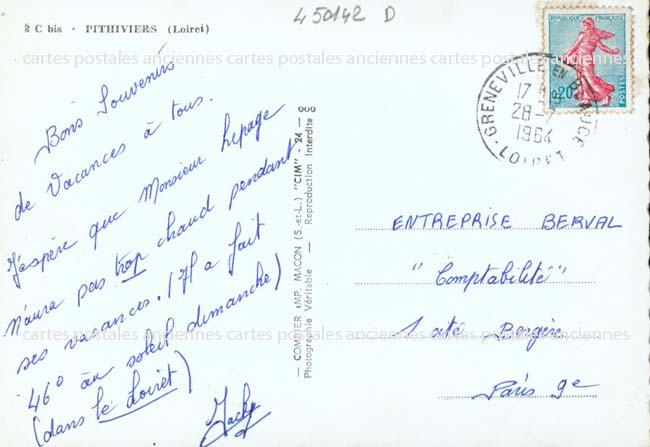 450142 D
2 C bis - PITHIVIERS (Loiret)
cartes postales anciennes cartes postales anciennes cartes postales anciennes
Bons Souvenirs
de Vacances à tous.
J'espère que Monsieur Lepage
n'aura pas trop chaud pendant
ses vacances. (Il a fait
46° au soleil dimanche)
(dans le Loiret)
Jacky
COMBIER IMP. MACON (S.-et-L.) "CIM" - 24 -
Photographie Véritable - Reproduction Interdite
REPUBLIQUE FRANÇAISE
0,20
POSTES
GRENEVILLE EN BEAUCE
17 H
28-7
1964
LOIRET
ENTREPRISE BERVAL
"Comptabilité"
1 cité Bergère
Paris 9e
cartes postales anciennes cartes postales anciennes cartes postales anciennes